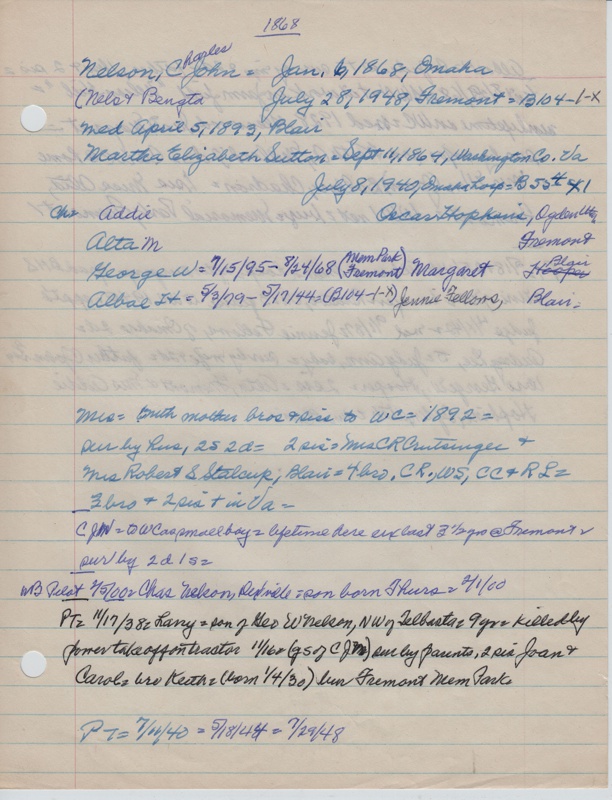 1868
Nelson, Charles John = Jan. 6, 1868, Omaha
(Nels & Bengta July 28, 1948, Fremont = B104-1-X
med April 5, 1893, Blair
Martha Elizabeth Sutton = Sept 11, 1864, Washington Co. Va
July 8, 1940, Omaha hosp = B55
Ch = Addie Oscar Hopkins, Ogden Utah
Alta M Fremont
George W = 7/15/95 - 8/24/68 (Mem Park Fremont) Margaret Hooper Blair
Albae H = 5/3/79 - 5/17/44 = (B104-1-X) Jennie Fellows, Blair =
Mrs = with mother bros & sis to WC = 1892 =
sur by hus, 2s 2d = 2 sis = Mrs CR Crutsinger &
Mrs Robert S Stalcup, Blair = 4 bro, CR, WS, CC & RL =
2 bro & 2 sis + in Va =
CJN = to WC as small boy = lifetime here ex last 3 1/2 yrs @ Fremont =
sur by 2d 1s =
Pilot 2/5/00 = Chas Nelson, = son born Thurs = 2/1/00
PT = 11/17/38 = Larry = son of Geo W Nelson, NW of Telbasta = 9 yr = killed by
power takeoff on tractor 11/16 = (gs of CJN) sur by parents, 2 sis Joan &
Carol = bro Keith = (born 1/4/30) bur Fremont Mem Park =
PT = 7/11/40 = 5/18/44 = 7/29/48